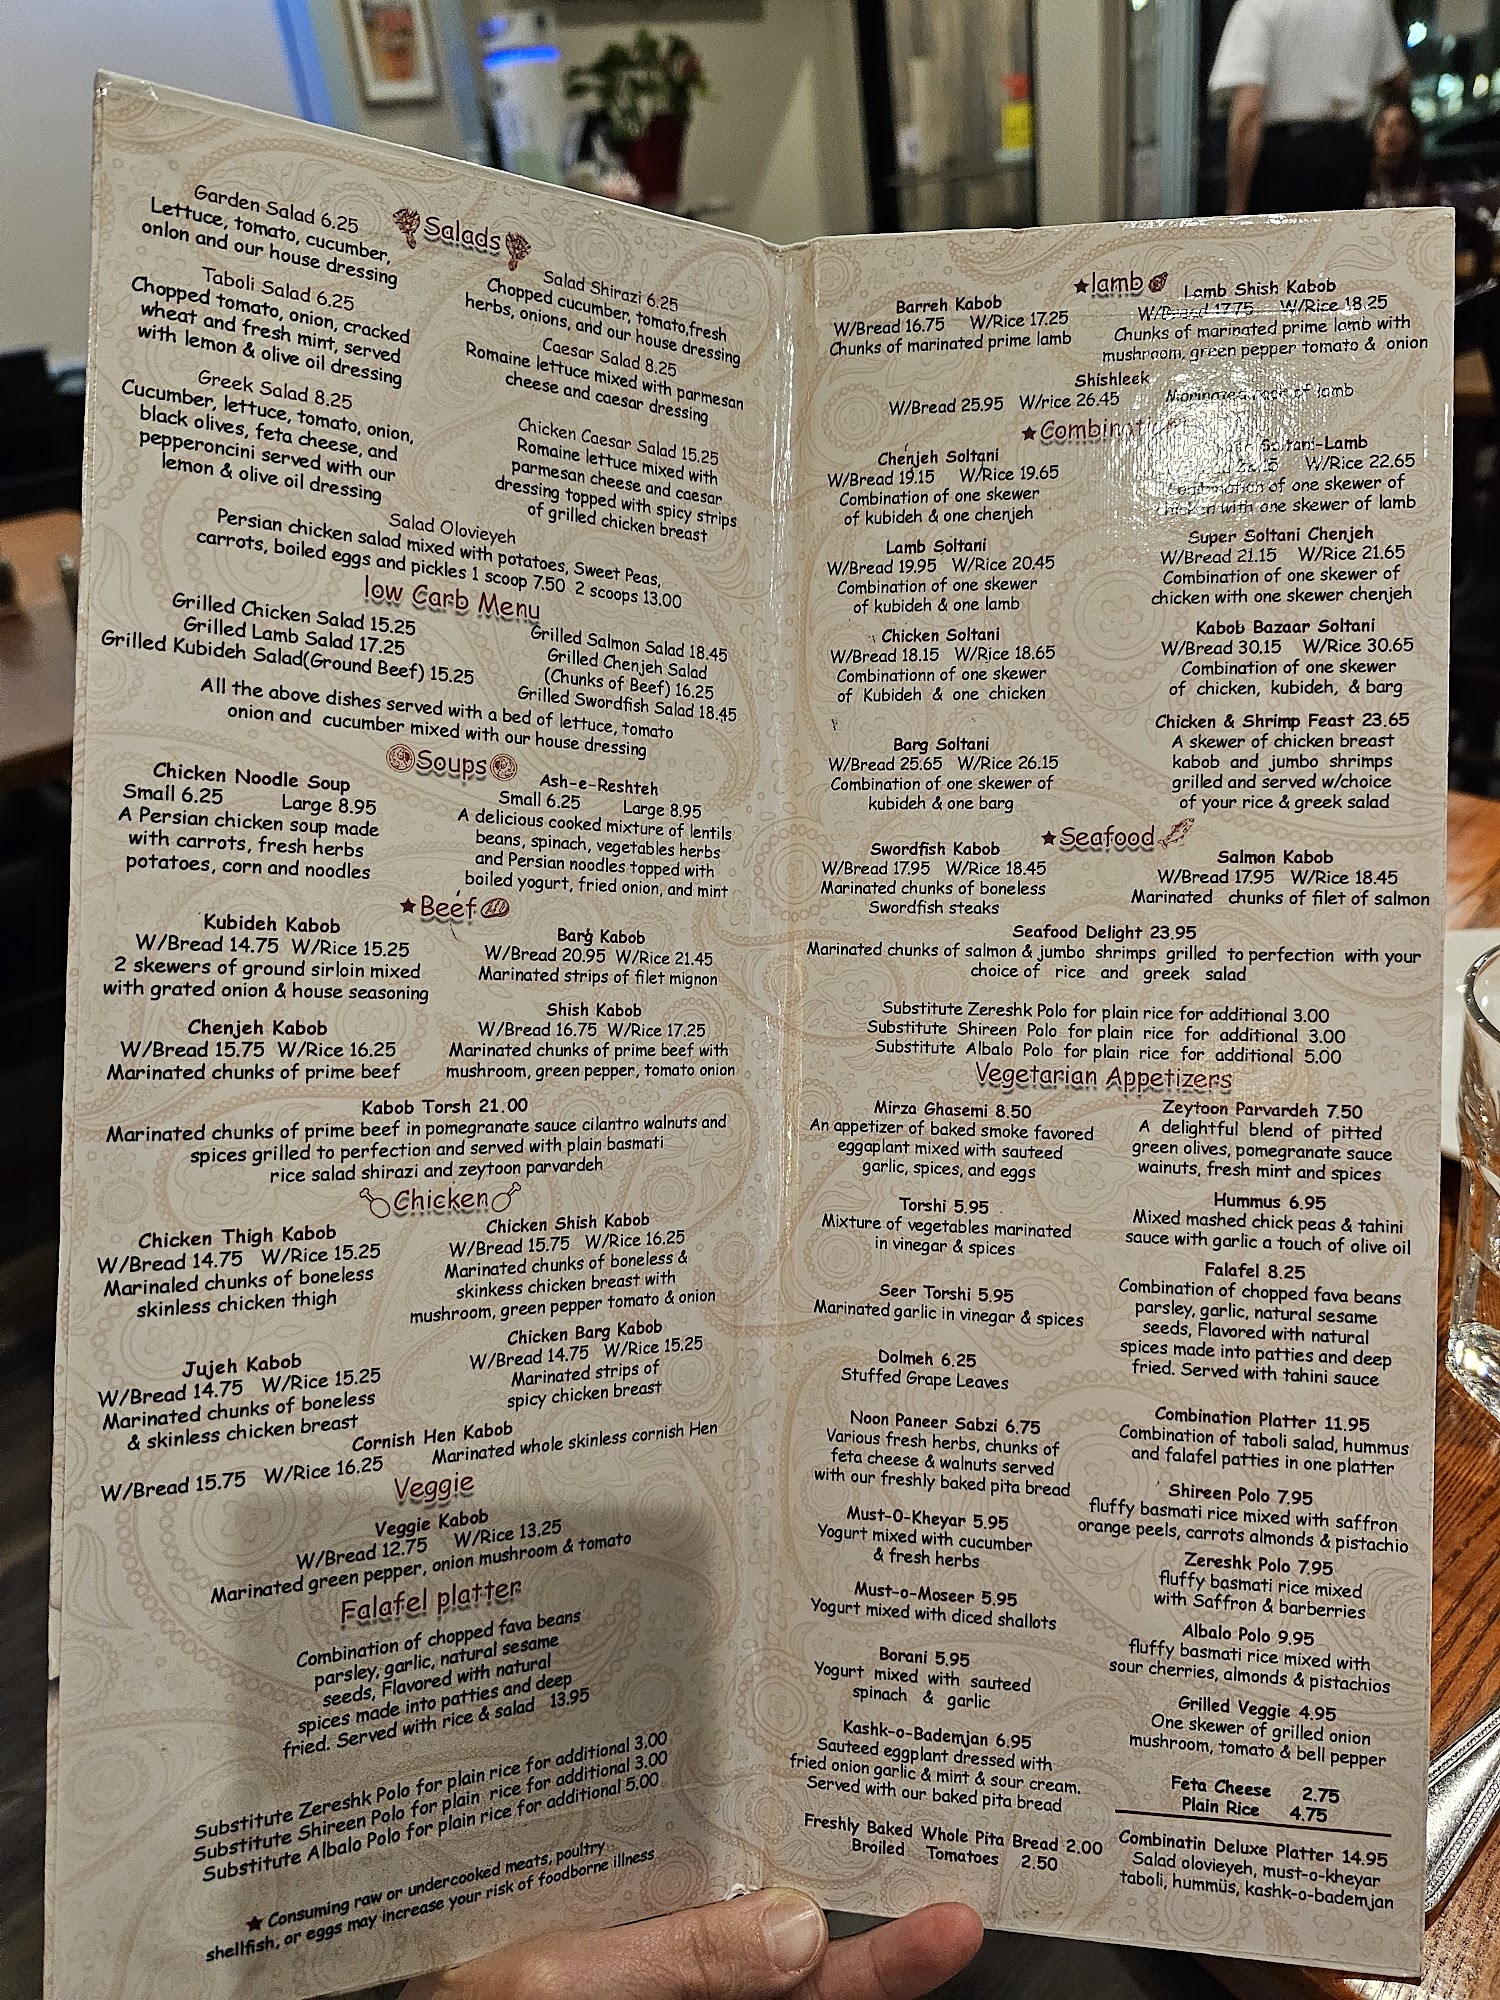 Salads
Garden Salad 6.25
Lettuce, tomato, cucumber,
onion and our house dressing
Taboli Salad 6.25
Chopped tomato, onion, cracked
wheat and fresh mint, served
with lemon & olive oil dressing
Greek Salad 8.25
Cucumber, lettuce, tomato, onion,
black olives, feta cheese, and
pepperoncini served with our
lemon & olive oil dressing
Salad Shirazi 6.25
Chopped cucumber, tomato,fresh
herbs, onions, and our house dressing
Caesar Salad 8.25
Romaine lettuce mixed with parmesan
cheese and caesar dressing
Chicken Caesar Salad 15.25
Romaine lettuce mixed with
parmesan cheese and caesar
dressing topped with spicy strips
of grilled chicken breast
Salad Olovieyeh
Persian chicken salad mixed with potatoes, Sweet Peas,
carrots, boiled eggs and pickles 1 scoop 7.50 2 scoops 13.00
low Carb Menu
Grilled Chicken Salad 15.25
Grilled Lamb Salad 17.25
Grilled Kubideh Salad(Ground Beef) 15.25
Grilled Salmon Salad 18.45
Grilled Chenjeh Salad
(Chunks of Beef) 16.25
Grilled Swordfish Salad 18.45
All the above dishes served with a bed of lettuce, tomato
onion and cucumber mixed with our house dressing
Soups
Chicken Noodle Soup
Small 6.25 Large 8.95
A Persian chicken soup made
with carrots, fresh herbs
potatoes, corn and noodles
Ash-e-Reshteh
Small 6.25 Large 8.95
A delicious cooked mixture of lentils
beans, spinach, vegetables herbs
and Persian noodles topped with
boiled yogurt, fried onion, and mint
★Beef
Kubideh Kabob
W/Bread 14.75 W/Rice 15.25
2 skewers of ground sirloin mixed
with grated onion & house seasoning
Chenjeh Kabob
W/Bread 15.75 W/Rice 16.25
Marinated chunks of prime beef
Barg Kabob
W/Bread 20.95 W/Rice 21.45
Marinated strips of filet mignon
Shish Kabob
W/Bread 16.75 W/Rice 17.25
Marinated chunks of prime beef with
mushroom, green pepper, tomato onion
Kabob Torsh 21.00
Marinated chunks of prime beef in pomegranate sauce cilantro walnuts and
spices grilled to perfection and served with plain basmati
rice salad shirazi and zeytoon parvardeh
Chicken
Chicken Thigh Kabob
W/Bread 14.75 W/Rice 15.25
Marinaled chunks of boneless
skinless chicken thigh
Jujeh Kabob
W/Bread 14.75 W/Rice 15.25
Marinated chunks of boneless
& skinless chicken breast
Chicken Shish Kabob
W/Bread 15.75 W/Rice 16.25
Marinated chunks of boneless &
skinkess chicken breast with
mushroom, green pepper tomato & onion
Chicken Barg Kabob
W/Bread 14.75 W/Rice 15.25
Marinated strips of
spicy chicken breast
Cornish Hen Kabob
W/Bread 15.75 W/Rice 16.25 Marinated whole skinless cornish Hen
Veggie
Veggie Kabob
W/Bread 12.75 W/Rice 13.25
Marinated green pepper, onion mushroom & tomato
Falafel platter
Combination of chopped fava beans
parsley, garlic, natural sesame
seeds, Flavored with natural
spices made into patties and deep
fried. Served with rice & salad 13.95
Substitute Zereshk Polo for plain rice for additional 3.00
Substitute Shireen Polo for plain rice for additional 3.00
Substitute Albalo Polo for plain rice for additional 5.00
★ Consuming raw or undercooked meats, poultry
shellfish, or eggs may increase your risk of foodborne illness
★lamb
Barreh Kabob
W/Bread 16.75 W/Rice 17.25
Chunks of marinated prime lamb
Lamb Shish Kabob
W/Bread 17.75 W/Rice 18.25
Chunks of marinated prime lamb with
mushroom, green pepper tomato & onion
Shishleek
W/Bread 25.95 W/rice 26.45 Marinated rack of lamb
★Combination
Chenjeh Soltani
W/Bread 19.15 W/Rice 19.65
Combination of one skewer
of kubideh & one chenjeh
Lamb Soltani
W/Bread 19.95 W/Rice 20.45
Combination of one skewer
of kubideh & one lamb
Chicken Soltani
W/Bread 18.15 W/Rice 18.65
Combinationn of one skewer
of Kubideh & one chicken
Barg Soltani
W/Bread 25.65 W/Rice 26.15
Combination of one skewer of
kubideh & one barg
Soltani-Lamb
W/Rice 22.65
Combination of one skewer of
chicken with one skewer of lamb
Super Soltani Chenjeh
W/Bread 21.15 W/Rice 21.65
Combination of one skewer of
chicken with one skewer chenjeh
Kabob Bazaar Soltani
W/Bread 30.15 W/Rice 30.65
Combination of one skewer
of chicken, kubideh, & barg
Chicken & Shrimp Feast 23.65
A skewer of chicken breast
kabob and jumbo shrimps
grilled and served w/choice
of your rice & greek salad
★Seafood
Swordfish Kabob
W/Bread 17.95 W/Rice 18.45
Marinated chunks of boneless
Swordfish steaks
Salmon Kabob
W/Bread 17.95 W/Rice 18.45
Marinated chunks of filet of salmon
Seafood Delight 23.95
Marinated chunks of salmon & jumbo shrimps grilled to perfection with your
choice of rice and greek salad
Substitute Zereshk Polo for plain rice for additional 3.00
Substitute Shireen Polo for plain rice for additional 3.00
Substitute Albalo Polo for plain rice for additional 5.00
Vegetarian Appetizers
Mirza Ghasemi 8.50
An appetizer of baked smoke favored
eggplant mixed with sauteed
garlic, spices, and eggs
Torshi 5.95
Mixture of vegetables marinated
in vinegar & spices
Seer Torshi 5.95
Marinated garlic in vinegar & spices
Dolmeh 6.25
Stuffed Grape Leaves
Noon Paneer Sabzi 6.75
Various fresh herbs, chunks of
feta cheese & walnuts served
with our freshly baked pita bread
Must-O-Kheyar 5.95
Yogurt mixed with cucumber
& fresh herbs
Must-o-Moseer 5.95
Yogurt mixed with diced shallots
Borani 5.95
Yogurt mixed with sauteed
spinach & garlic
Kashk-o-Bademjan 6.95
Sauteed eggplant dressed with
fried onion garlic & mint & sour cream.
Served with our baked pita bread
Freshly Baked Whole Pita Bread 2.00
Broiled Tomatoes 2.50
Zeytoon Parvardeh 7.50
A delightful blend of pitted
green olives, pomegranate sauce
wainuts, fresh mint and spices
Hummus 6.95
Mixed mashed chick peas & tahini
sauce with garlic a touch of olive oil
Falafel 8.25
Combination of chopped fava beans
parsley, garlic, natural sesame
seeds, Flavored with natural
spices made into patties and deep
fried. Served with tahini sauce
Combination Platter 11.95
Combination of taboli salad, hummus
and falafel patties in one platter
Shireen Polo 7.95
fluffy basmati rice mixed with saffron
orange peels, carrots almonds & pistachio
Zereshk Polo 7.95
fluffy basmati rice mixed
with Saffron & barberries
Albalo Polo 9.95
fluffy basmati rice mixed with
sour cherries, almonds & pistachios
Grilled Veggie 4.95
One skewer of grilled onion
mushroom, tomato & bell pepper
Feta Cheese 2.75
Plain Rice 4.75
Combinatin Deluxe Platter 14.95
Salad olovieyeh, must-o-kheyar
taboli, hummüs, kashk-o-bademjan